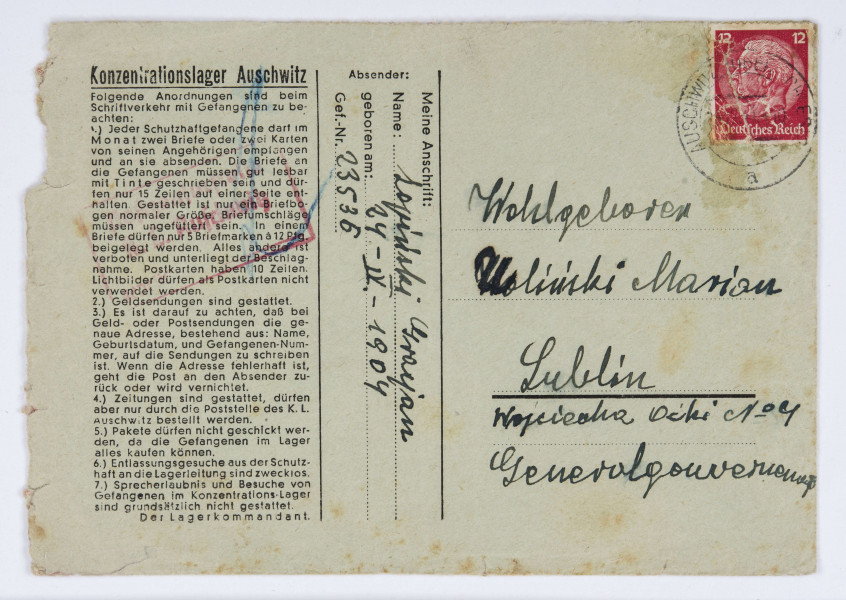 Konzentrationslager Auschwitz
Folgende Anordnungen sind beim
Schriftverkehr mit Gefangenen zu be-
achten:
1.) Jeder Schutzhaftgefangene darf im
Monat zwei Briefe oder zwei Karten
von seinen Angehörigen empfangen
und an sie absenden. Die Briefe an
die Gefangenen müssen gut lesbar
mit Tinte geschrieben sein und dür-
fen nur 15 Zeilen auf einer Seite ent-
halten. Gestattet ist nur ein Briefbo-
gen normaler Größe. Briefumschläge
müssen ungefüttert sein. In einem
Briefe dürfen nur 5 Briefmarken à 12 Pfg.
beigelegt werden. Alles andere ist
verboten und unterliegt der Beschlag-
nahme. Postkarten haben 10 Zeilen.
Lichtbilder dürfen als Postkarten nicht
verwendet werden.
2.) Geldsendungen sind gestattet.
3.) Es ist darauf zu achten, daß bei
Geld- oder Postsendungen die ge-
naue Adresse, bestehend aus: Name,
Geburtsdatum, und Gefangenen-Num-
mer, auf die Sendungen zu schreiben
ist. Wenn die Adresse fehlerhaft ist,
geht die Post an den Absender zu-
rück oder wird vernichtet.
4.) Zeitungen sind gestattet, dürfen
aber nur durch die Poststelle des K. L.
Auschwitz bestellt werden.
5.) Pakete dürfen nicht geschickt wer-
den, da die Gefangenen im Lager
alles kaufen können.
6.) Entlassungsgesuche aus der Schutz-
haft an die Lagerleitung sind zwecklos.
7.) Sprecherlaubnis und Besuche von
Gefangenen im Konzentrations-Lager
sind grundsätzlich nicht gestattet.
Der Lagerkommandant.
Absender:
Meine Anschrift:
Name:
geboren am: 24-IV-1904
Gef.-Nr. 23536
12 12
Deutsches Reich
AUSCHWITZ
a
Wohlgeboren
Woliński Marian
Lublin
Wojciecha No 4
Generalgouvernement